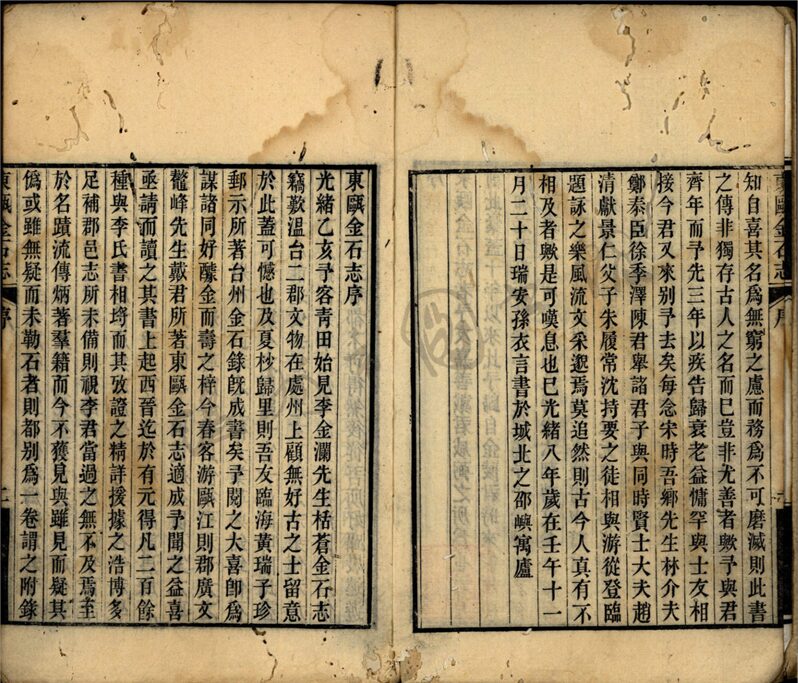 知自喜其名為無窮之慮而務為不可磨滅則此書
之傳非獨存古人之名而已豈非尤善者歟予與君
齊年而予先三年以疾告歸衰老益慵罕與士友相
接今君又來别予去矣每念宋時吾鄉先生林介夫
鄭泰臣徐季澤陳君舉諸君子與同時賢士大夫趙
清獻景仁父子朱履常沈持要之徒相與游從登臨
題詠之樂風流文采邈焉莫追然則古今人真有不
相及者歟是可嘆息也巳光緒八年歲在壬午十一
月二十日瑞安孫衣言書於城北之邵嶼寓廬
東甌金石志序
光緒乙亥予客青田始見李金瀾先生栝蒼金石志
竊歎溫台二郡文物在處州上顧無好古之士留意
於此蓋可憾也及夏杪歸里則吾友臨海黃瑞子珍
郵示所著台州金石錄旣成書矣予閱之大喜卽為
謀諸同好醵金而壽之梓今春客游甌江則郡廣文
鼇峰先生戴君所著東甌金石志適成予聞之益喜
亟請而讀之其書上起西晉迄於有元得凡二百餘
種與李氏書相埒而其攷證之精詳援據之浩博多
足補郡邑志所未備則視李君當過之無不及焉至
於名蹟流傳炳著羣籍而今不獲見與雖見而疑其
僞或雖無疑而未勒石者則都别為一卷謂之附錄
東甌金石志
序
二